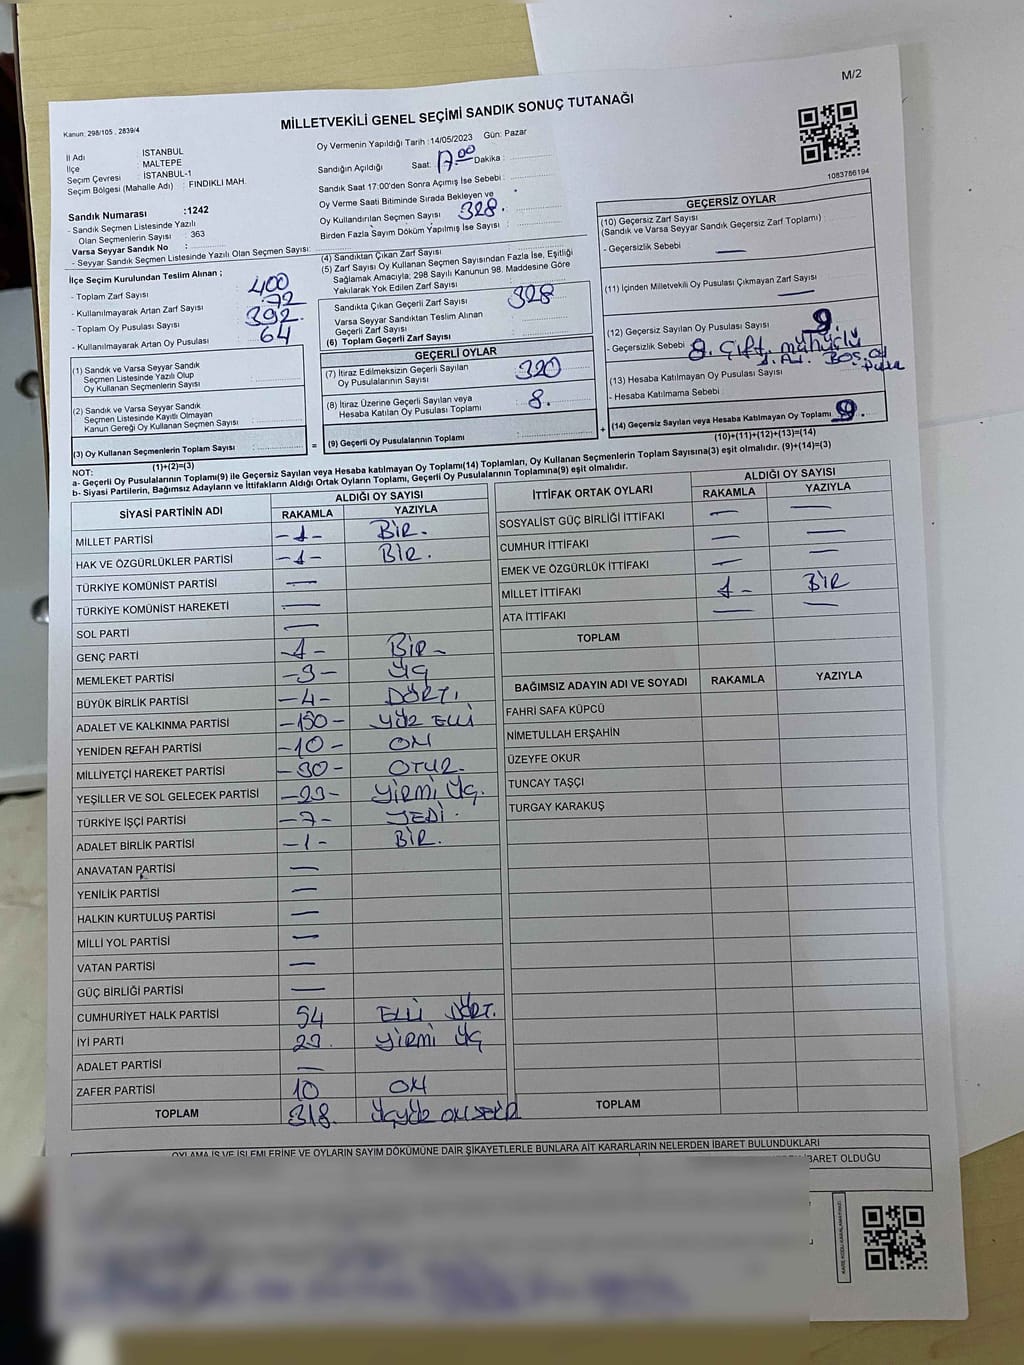 M/2
MİLLETVEKİLİ GENEL SEÇİMİ SANDIK SONUÇ TUTANAĞI
Kanun: 298/105 , 2839/4
İl Adı : İSTANBUL
İlçe : MALTEPE
Seçim Çevresi : İSTANBUL-1
Seçim Bölgesi (Mahalle Adı) : FINDIKLI MAH.
Sandık Numarası :1242
- Sandık Seçmen Listesinde Yazılı
Olan Seçmenlerin Sayısı : 363
Varsa Seyyar Sandık No :
- Seyyar Sandık Seçmen Listesinde Yazılı Olan Seçmen Sayısı:
Oy Vermenin Yapıldığı Tarih :14/05/2023 Gün: Pazar
Sandığın Açıldığı Saat: 17.00 Dakika :
Sandık Saat 17:00'den Sonra Açımış İse Sebebi :
Oy Verme Saati Bitiminde Sırada Bekleyen ve
Oy Kullandırılan Seçmen Sayısı 328.
Birden Fazla Sayım Döküm Yapılmış İse Sayısı :
1083786194
İlçe Seçim Kurulundan Teslim Alınan ;
- Toplam Zarf Sayısı : 400
- Kullanılmayarak Artan Zarf Sayısı : 72
- Toplam Oy Pusulası Sayısı : 392.
- Kullanılmayarak Artan Oy Pusulası : 64
(1) Sandık ve Varsa Seyyar Sandık
Seçmen Listesinde Yazılı Olup
Oy Kullanan Seçmenlerin Sayısı :
(2) Sandık ve Varsa Seyyar Sandık
Seçmen Listesinde Kayıtlı Olmayan
Kanun Gereği Oy Kullanan Seçmen Sayısı :
(3) Oy Kullanan Seçmenlerin Toplam Sayısı :
(1)+(2)=(3)
(4) Sandıktan Çıkan Zarf Sayısı
(5) Zarf Sayısı Oy Kullanan Seçmen Sayısından Fazla İse, Eşitliği
Sağlamak Amacıyla, 298 Sayılı Kanunun 98. Maddesine Göre
Yakılarak Yok Edilen Zarf Sayısı :
Sandıkta Çıkan Geçerli Zarf Sayısı 328
Varsa Seyyar Sandıktan Teslim Alınan
Geçerli Zarf Sayısı :
(6) Toplam Geçerli Zarf Sayısı
GEÇERLİ OYLAR
(7) İtiraz Edilmeksizin Geçerli Sayılan
Oy Pusulalarının Sayısı : 320
(8) İtiraz Üzerine Geçerli Sayılan veya
Hesaba Katılan Oy Pusulası Toplamı : 8.
= (9) Geçerli Oy Pusulalarının Toplamı +
GEÇERSİZ OYLAR
(10) Geçersiz Zarf Sayısı
(Sandık ve Varsa Seyyar Sandık Geçersiz Zarf Toplamı) :
- Geçersizlik Sebebi : —
(11) İçinden Milletvekili Oy Pusulası Çıkmayan Zarf Sayısı
—
(12) Geçersiz Sayılan Oy Pusulası Sayısı : 9
- Geçersizlik Sebebi : 8. Çift mühürlü
BOŞ oy
(13) Hesaba Katılmayan Oy Pusulası Sayısı :
- Hesaba Katılmama Sebebi :
(14) Geçersiz Sayılan veya Hesaba Katılmayan Oy Toplamı 9.
(10)+(11)+(12)+(13)=(14)
NOT:
a- Geçerli Oy Pusulalarının Toplamı(9) ile Geçersiz Sayılan veya Hesaba katılmayan Oy Toplamı(14) Toplamları, Oy Kullanan Seçmenlerin Toplam Sayısına(3) eşit olmalıdır. (9)+(14)=(3)
b- Siyasi Partilerin, Bağımsız Adayların ve İttifakların Aldığı Ortak Oyların Toplamı, Geçerli Oy Pusulalarının Toplamına(9) eşit olmalıdır.
SİYASİ PARTİNİN ADI ALDIĞI OY SAYISI
RAKAMLA YAZIYLA
MİLLET PARTİSİ -1- BİR.
HAK VE ÖZGÜRLÜKLER PARTİSİ -1- BİR.
TÜRKİYE KOMÜNİST PARTİSİ —
TÜRKİYE KOMÜNİST HAREKETİ —
SOL PARTİ —
GENÇ PARTİ -1- BİR-
MEMLEKET PARTİSİ -3- ÜÇ
BÜYÜK BİRLİK PARTİSİ -4- DÖRT.
ADALET VE KALKINMA PARTİSİ -150- YÜZ ELLİ
YENİDEN REFAH PARTİSİ -10- ON
MİLLİYETÇİ HAREKET PARTİSİ -30- OTUZ.
YEŞİLLER VE SOL GELECEK PARTİSİ -23- YİRMİ ÜÇ.
TÜRKİYE İŞÇİ PARTİSİ -7- YEDİ.
ADALET BİRLİK PARTİSİ -1- BİR.
ANAVATAN PARTİSİ —
YENİLİK PARTİSİ —
HALKIN KURTULUŞ PARTİSİ —
MİLLİ YOL PARTİSİ —
VATAN PARTİSİ —
GÜÇ BİRLİĞİ PARTİSİ —
CUMHURİYET HALK PARTİSİ 54 ELLİ DÖRT.
İYİ PARTİ 23. YİRMİ ÜÇ
ADALET PARTİSİ —
ZAFER PARTİSİ 10 ON
TOPLAM 318. ÜÇYÜZ ONSEKİZ
İTTİFAK ORTAK OYLARI ALDIĞI OY SAYISI
RAKAMLA YAZIYLA
SOSYALİST GÜÇ BİRLİĞİ İTTİFAKI — —
CUMHUR İTTİFAKI — —
EMEK VE ÖZGÜRLÜK İTTİFAKI — —
MİLLET İTTİFAKI 1- BİR
ATA İTTİFAKI — —
TOPLAM
BAĞIMSIZ ADAYIN ADI VE SOYADI RAKAMLA YAZIYLA
FAHRİ SAFA KÜPCÜ
NİMETULLAH ERŞAHİN
ÜZEYFE OKUR
TUNCAY TAŞÇI
TURGAY KARAKUŞ
TOPLAM
OYLAMA İŞ VE İŞLEMLERİNE VE OYLARIN SAYIM DÖKÜMÜNE DAİR ŞİKAYETLERLE BUNLARA AİT KARARLARIN NELERDEN İBARET BULUNDUKLARI
İBARET OLDUĞU